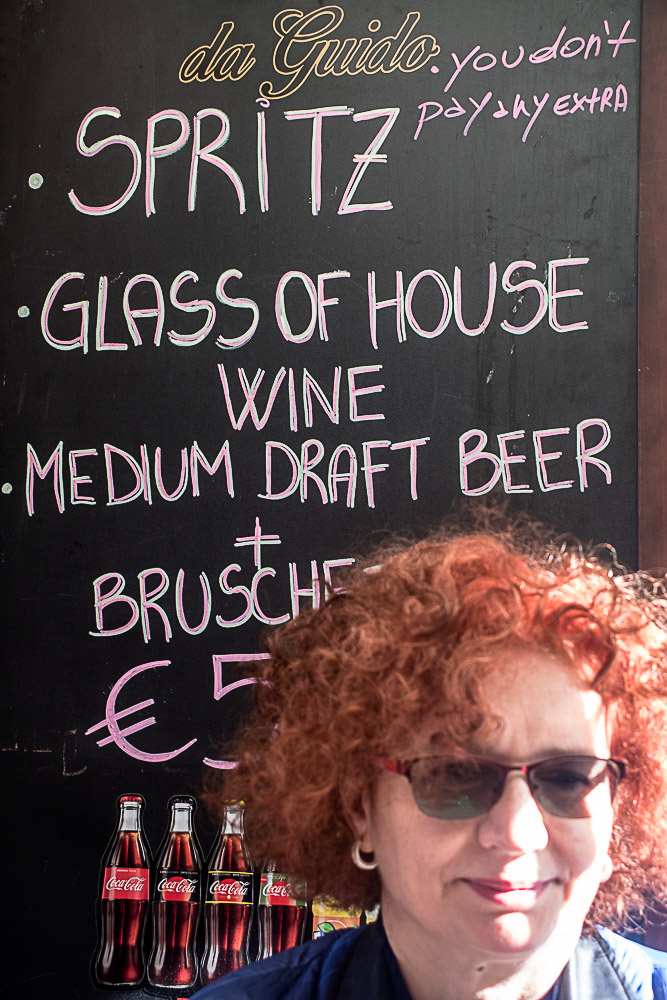 da Guido
. you don't
pay any extra
· SPRiTZ
· GLASS OF HOUSE
WINE
· MEDIUM DRAFT BEER
+
BRUSCHE
€ 5
Coca-Cola Coca-Cola Coca-Cola Coca-Cola